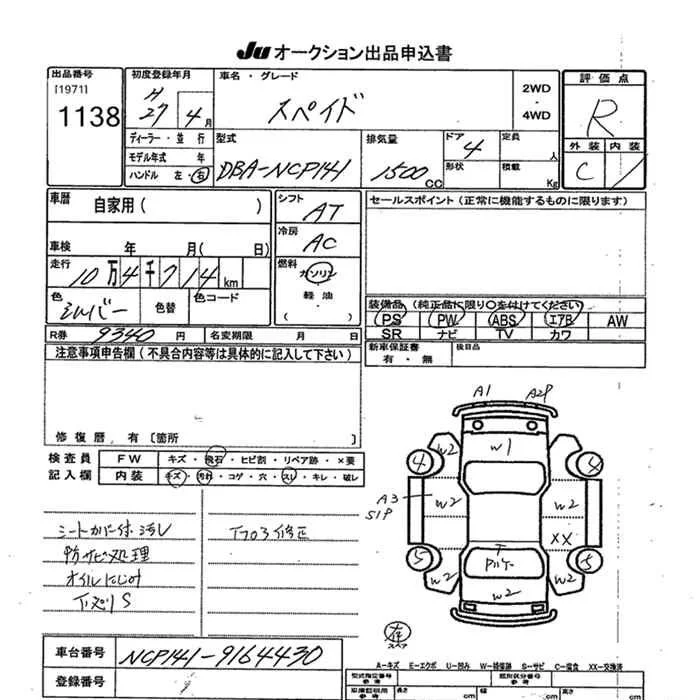 Ju オークション出品申込書
出品番号
[1971]
1138
初度登録年月
H
27 4 月
車名・グレード
スペイド
2WD
・
4WD
評価点
R
外装 内装
C
ディーラー・並行
モデル年式 年
ハンドル 左・右
型式
DBA-NCP141
排気量
1500 CC
ドア
4
形状
定員
人
積載
Kg
車暦
自家用( )
シフト
AT
冷房
AC
燃料
ガソリン
軽油
( )
セールスポイント(正常に機能するものに限ります)
車検 年 月( 日)
走行
10万4千714km
色
シルバー
色替
色コード
装備品(純正品に限り○を付けてください)
PS PW ABS エアB AW
SR ナビ TV カワ
R券 9340 円
名変期限 月 日
新車保証書
有・無
後日品
注意事項申告欄(不具合内容等は具体的に記入して下さい)
修復暦、有〔箇所 〕
検査員
記入欄
FW キズ・飛石・ヒビ割・リペア跡・×要
内装 キズ・汚れ・コゲ・穴・スレ・キレ・破レ
シートカバー付、汚レ
防サビ処理
オイルにじみ
下廻りS
A1
A2P
W2
W1
W2
4
4
A3
S1P
W2
W2
XX
5
5
W2
W2
W2
スペア
車台番号
NCP141-9164430
登録番号
A-キズ E-エクボ U-凹み W-補修跡 S-サビ C-腐食 XX-交換済
型式指定番号
参考
類別区分番号
参考
長さ cm
幅 cm
高さ cm